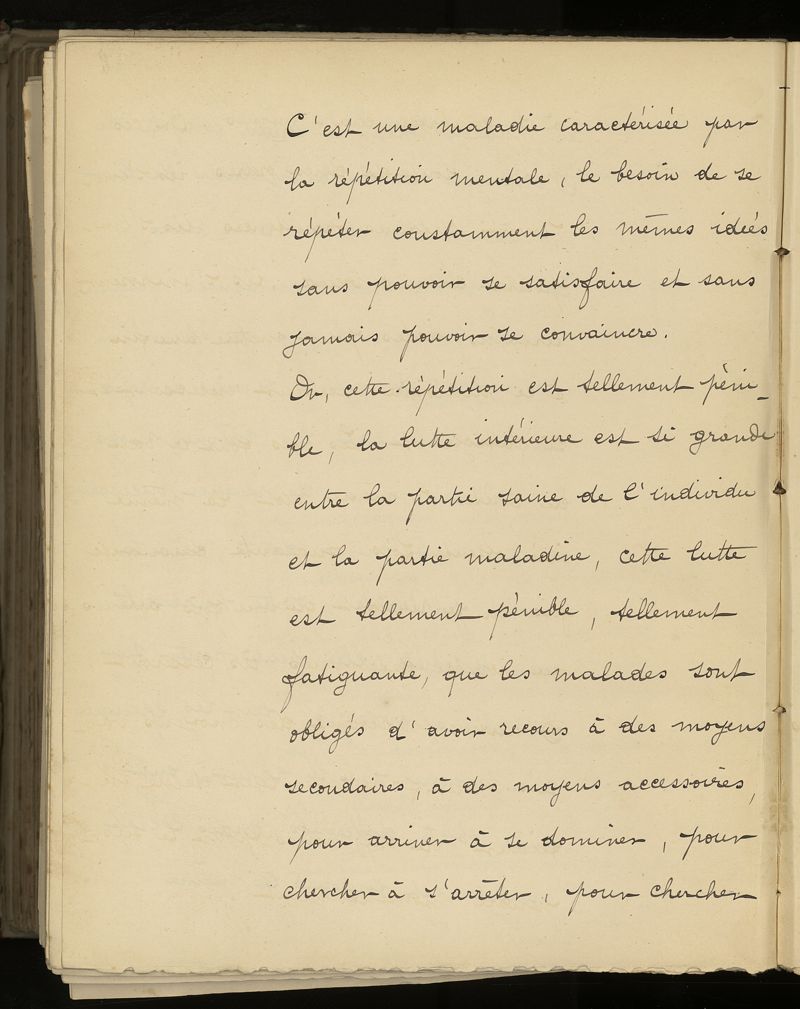 C'est une maladie caractérisée par
la répétition mentale, le besoin de se
répéter constamment les mêmes idées
sans pouvoir se satisfaire et sans
jamais pouvoir se convaincre.
Or, cette répétition est tellement péni-
ble, la lutte intérieure est si grande
entre la partie saine de l'individu
et la partie maladine, cette lutte
est tellement pénible, tellement
fatiguante, que les malades sont
obligés d'avoir recours à des moyens
secondaires, à des moyens accessoires,
pour arriver à se dominer, pour
chercher à s'arrêter, pour chercher